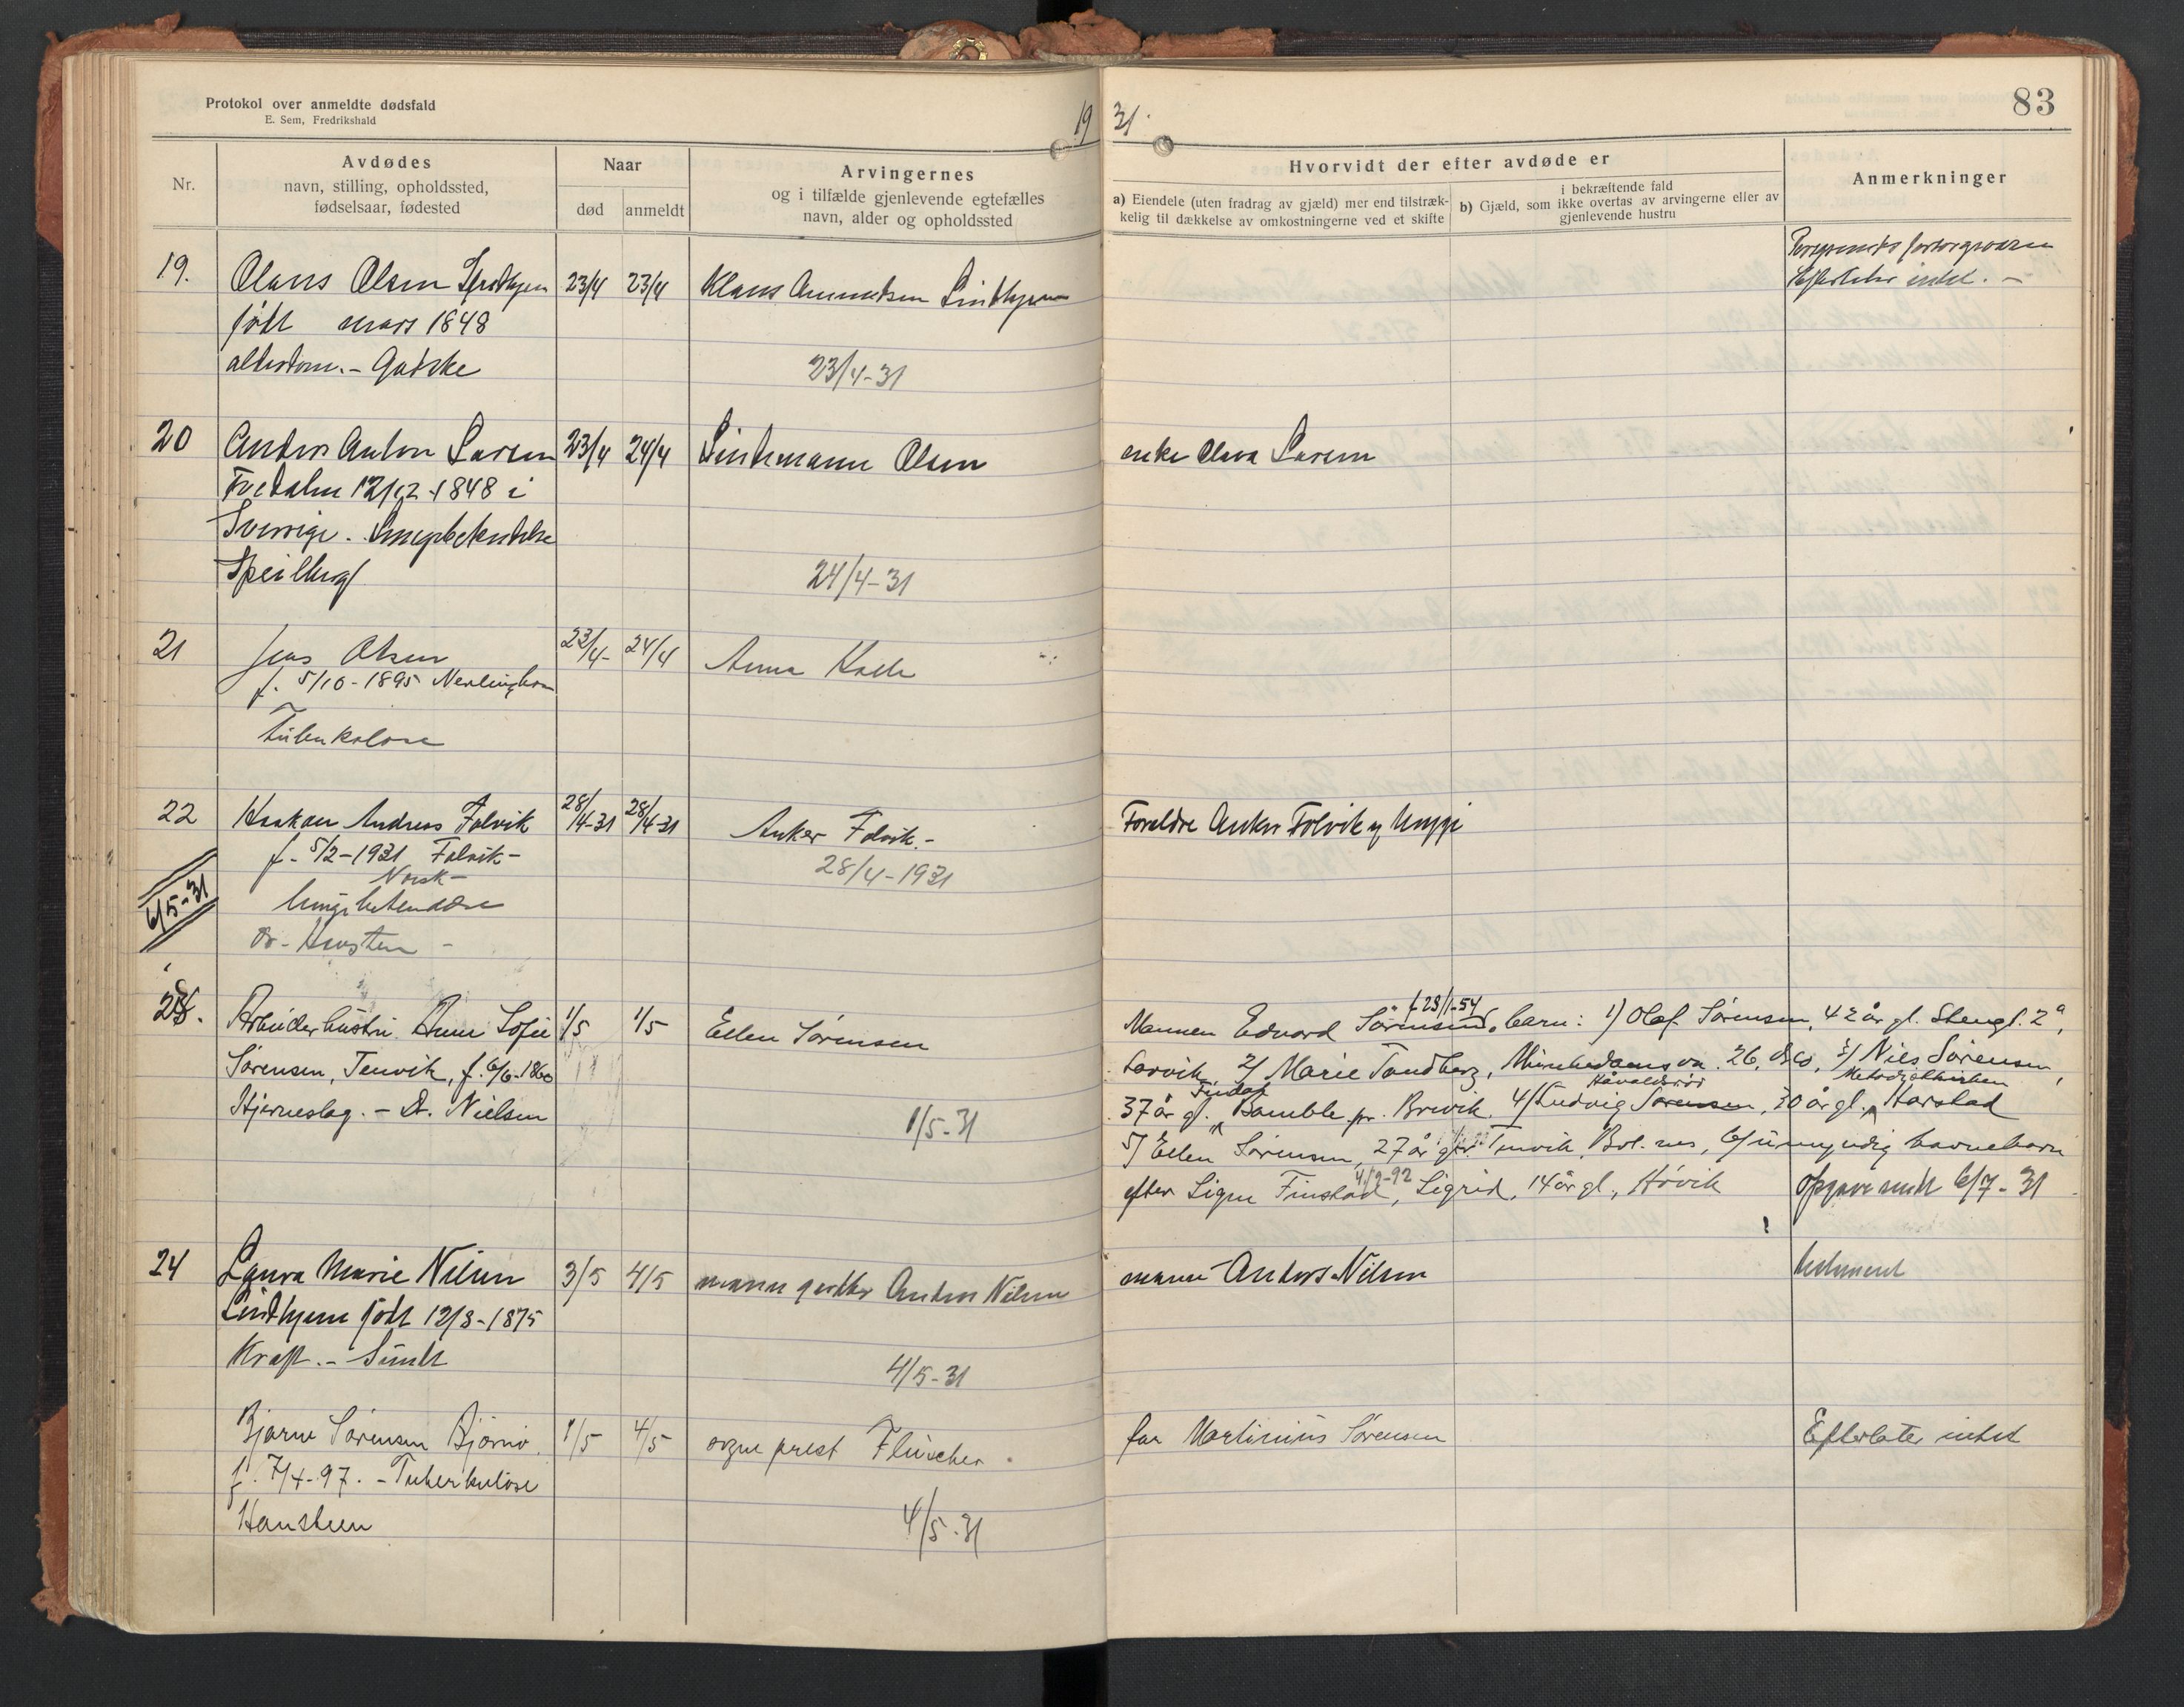 Protokol over anmeldte dødsfald
E. Sem, Fredrikshald
19 31.
83
Nr.
Avdødes
navn, stilling, opholdssted,
fødselsaar, fødested
Naar
død
anmeldt
Arvingernes
og i tilfælde gjenlevende egtefælles
navn, alder og opholdssted
Hvorvidt der efter avdøde er
a) Eiendele (uten fradrag av gjæld) mer end tilstræk-
kelig til dækkelse av omkostningerne ved et skifte
i bekræftende fald
b) Gjæld, som ikke overtas av arvingerne eller av
gjenlevende hustru
Anmerkninger
19. Olaus Olsen 23/4 23/4 Klaus Amundsen
født mars 1848
alderdom.-
23/4-31
intet. -
20 Anders Anton Larsen 23/4 24/4 Lindemann Olsen enke Olava Larsen
12/12-1848 i
Sverrige.
24/4-31
21 Jens Olsen 23/4- 24/4 Anna
f. 5/10-1895
Tuberkulose
22 Haakon Andreas Folvik 28/4-31 28/4-31 Anker Folvik.- Foreldre Anker Folvik og
f. 5/2-1931 Folvik-
28/4-1931
Norsk-
6/5-31
lungebetendelse
Dr.
23. Arbeiderhustru Anne Sofie 1/5 1/5 Ellen Sørensen
Sørensen, Tenvik, f. 6/6-1860
Hjerneslag. - Dr. Nielsen
1/5-31
f. 23/1-54
Mannen Edvard Sørensen, barn: 1) Olaf Sørensen, 42 år gl. Stengt. 2a,
Larvik 2/ Marie Tandberg, Munkedamsvn. 26, Oslo, 3/ Nils Sørensen,
Findal Håvaldsrör Metodistkirken
37 år gl. Bamble pr. Brevik. 4/ Ludvig Sørensen, 30 år gl., Harstad
5/ Ellen Sørensen, 27 år gl. Tenvik, 6/ umyndig barnebarn
4/9-92
efter Signe Finstad, Sigrid, 14 år gl., Høvik
Opgave sendt 6/7-31
24 Laura Marie Nilsen 3/5 4/5 mann Anders Nilsen mann Anders Nilsen
Lindhjem født 12/3-1875
Kræft. -
4/5-31
Bjarne Sørensen Bjørnø. 1/5 4/5 sogneprest Fleischer. far Martinius Sørensen Efterlater intet
f. 7/4-97. - Tuberkulose
Hansteen
4/5-31